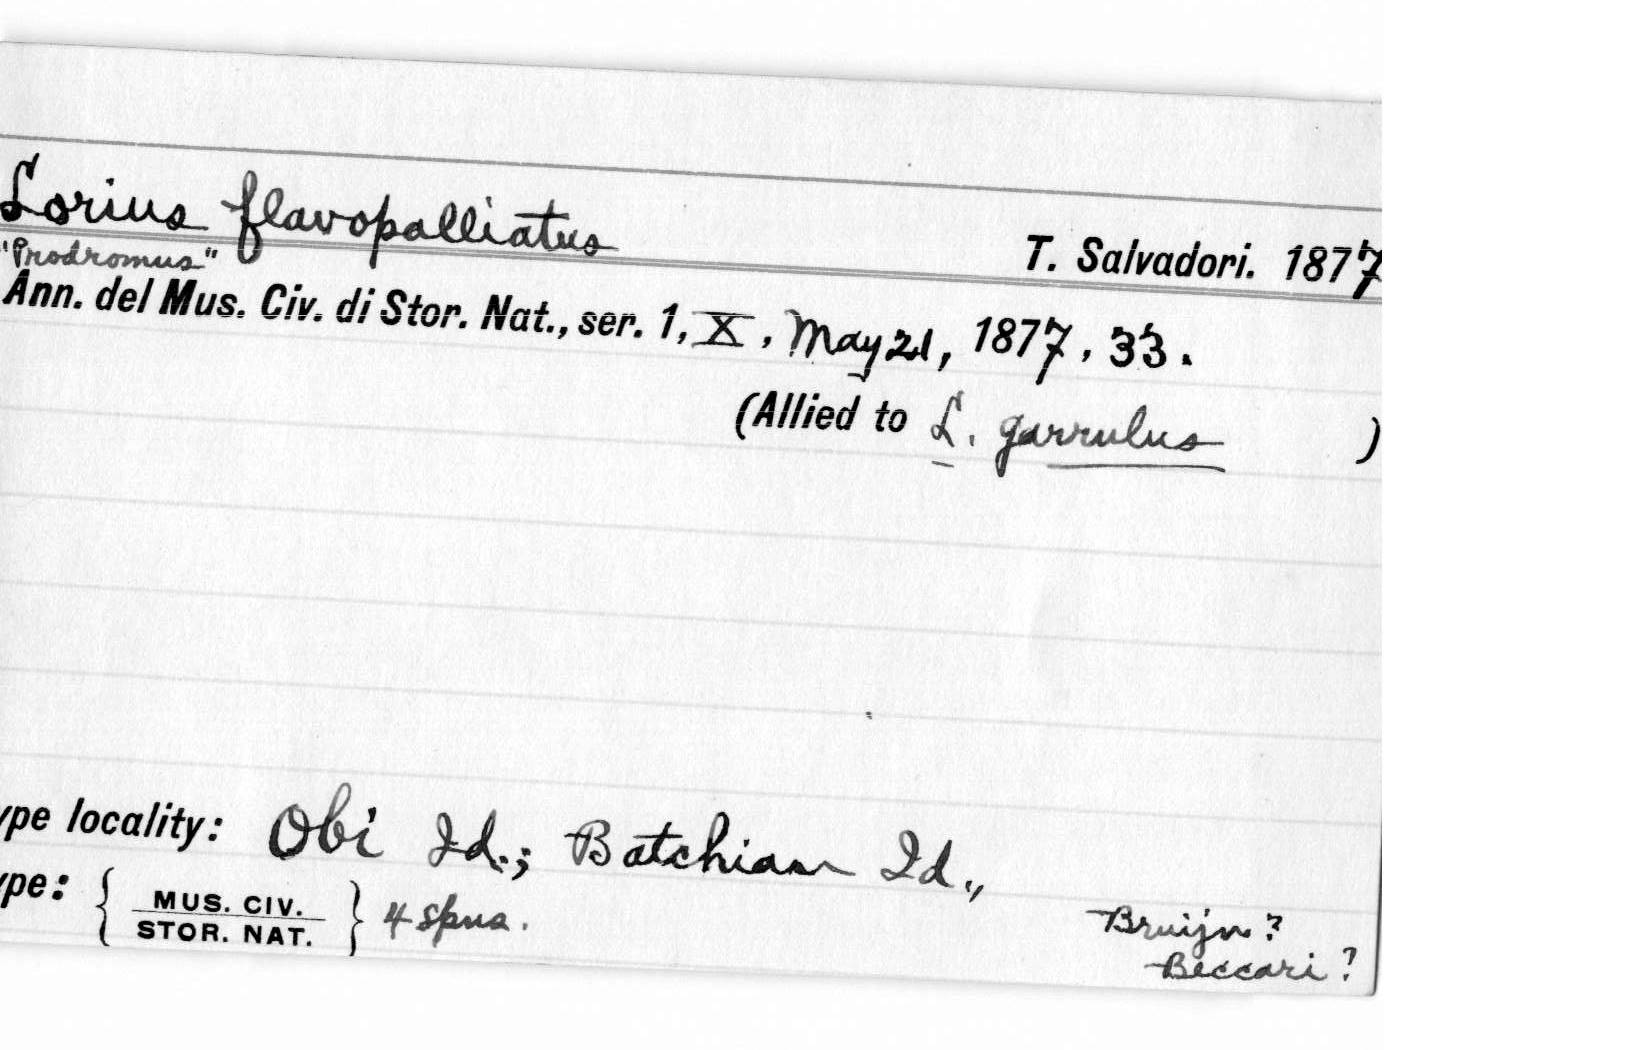 Lorius flavopalliatus
"Prodromus" T. Salvadori. 1877
Ann. del Mus. Civ. di Stor. Nat., ser. 1, X, May 21, 1877, 33.
(Allied to L. garrulus )
ype locality: Obi Id.; Batchian Id.,
ype: { MUS. CIV. STOR. NAT. } 4 spns.
Bruijn?
Beccari?